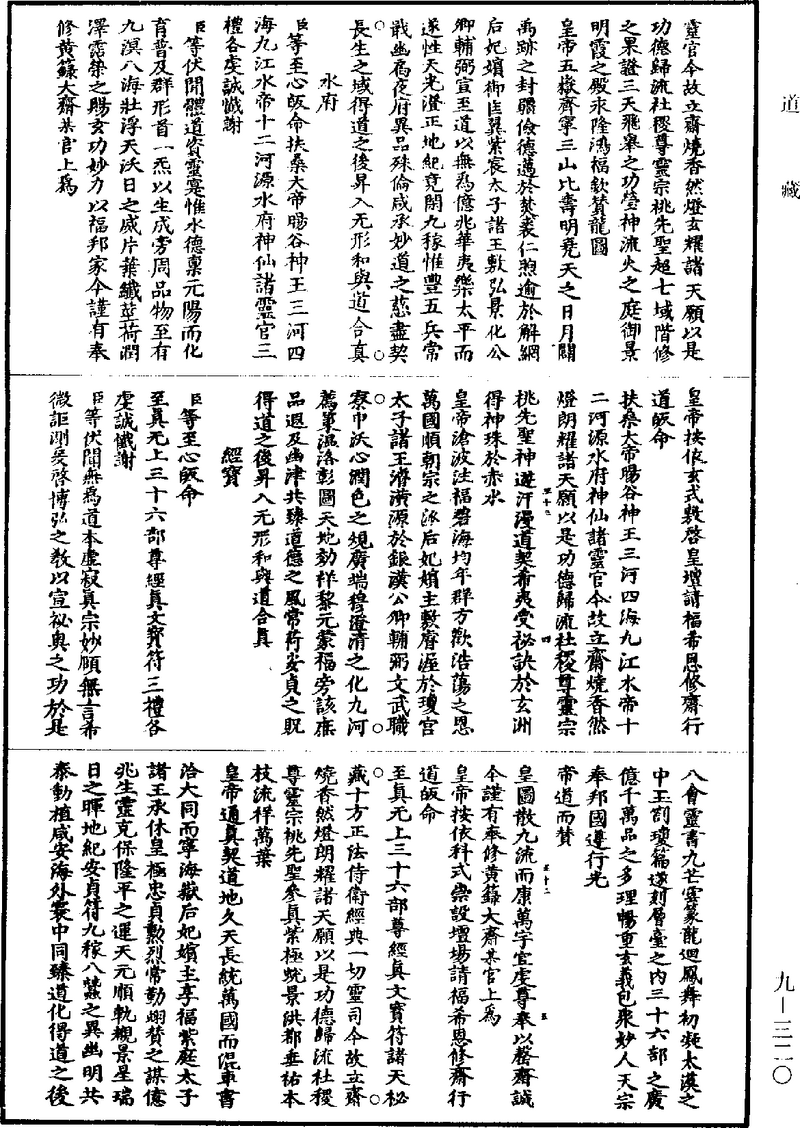 道藏
靈官今故立齋燒香然燈玄耀諸天願以是
功德歸流社稷尊靈宗祧先聖超七域階修
之果證三天飛舉之功瑩神流火之庭御景
明霞之殿永隆鴻福欽贊龍圖
皇帝五嶽齊寧三山比壽明堯天之日月闢
禹跡之封疆儉德邁於焚裘仁煦逾於解網
后妃嬪御匡翼紫宸太子諸王敷弘景化公
卿輔弼宣至道以無為億兆華夷樂太平而
遂性天光澄正地紀竟開九稼惟豐五兵常
戢幽扃夜府異品殊倫咸承妙道之慈盡契
長生之域得道之後昇入无形和與道合真
水府
臣等至心皈命扶桑大帝暘谷神王三河四
海九江水帝十二河源水府神仙諸靈官三
禮各虔誠懺謝
臣等伏聞體道資靈寔惟水德稟元陽而化
育普及群形首一炁以生成旁周品物至有
九溟八海壯浮天沃日之威片葉纖莖荷潤
澤霑榮之賜玄功妙力以福邦家今謹有奉
修黃籙大齋某官上為
皇帝按依玄式敷啓皇壇請福希恩修齋行
道皈命
扶桑大帝暘谷神王三河四海九江水帝十
二河源水府神仙諸靈官今故立齋燒香然
燈朗耀諸天願以是功德歸流社稷尊靈宗
祧先聖神遊汗漫道契希夷受祕訣於玄洲
得神珠於赤水
皇帝滄波注福碧海均年群方歡浩蕩之恩
萬國順朝宗之泳后妃嬪主敷膺渥於瓊宮
太子諸王濬潢源於銀漢公卿輔弼文武職
寮巾沃心潤色之規廣端穆澄清之化九河
薦第溫洛彰圖天地効祥黎元蒙福旁該庶
品遐及幽津共臻道德之風常荷安貞之貺
得道之後昇入无形和與道合真
經寶
臣等至心皈命
至真元上三十六部尊經真文寶符三禮各
虔誠懺謝
臣等伏聞無為道本虛寂真宗妙願無言希
微詎測爰啓博弘之教以宣祕奧之功於是
八會靈書九芒雲篆龍迴鳳舞初凝太漢之
中玉劄瓊篇遂刻層臺之內三十六部之廣
億千萬品之多理暢重玄義包衆妙人天宗
奉邦國遵行光
帝道而贊
皇圖散九流而康萬宇宜虔尊奉以罄齋誠
今謹有奉修黃籙大齋某官上為
皇帝按依科式崇設壇場請福希恩修齋行
道皈命
至真元上三十六部尊經真文寶符諸天祕
藏十方正法侍衛經典一切靈司今故立齋
燒香然燈朗耀諸天願以是功德歸流社稷
尊靈宗祧先聖參真紫極晄景洪都垂祐本
枝流祥萬葉
皇帝通真契道地久天長統萬國而混車書
洽大同而寧海嶽后妃嬪主享福紫庭太子
諸王承休皇極忠貞勳烈常勤翊贊之謀億
兆生靈克保隆平之運天元順軌襯景星瑞
日之暉地紀安貞符九稼八蠶之異幽明共
泰動植咸安海外寰中同臻道化得道之後
九—三二〇